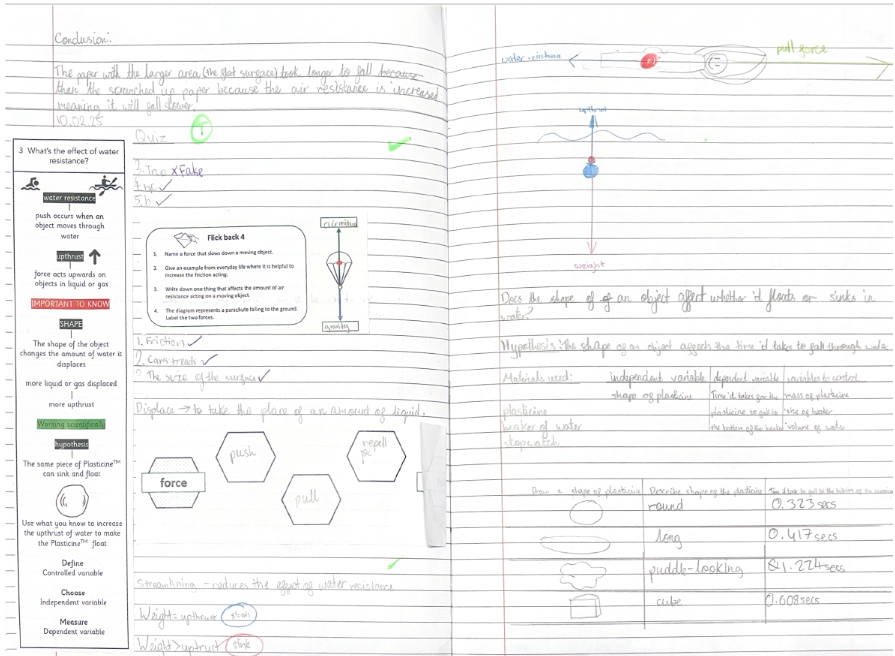 Conclusion:
The paper with the larger area (the flat surface) took longer to fall because
than the scrunched up paper because the air resistance is increased
meaning it will fall slower.
10.02.25
Quiz
T
3. True x Fake
5. b
3 What's the effect of water
resistance?
water resistance
push occurs when an
object moves through
water
upthrust
force acts upwards on
objects in liquid or gas
IMPORTANT TO KNOW
SHAPE
The shape of the object
changes the amount of water it
displaces
more liquid or gas displaced
more upthrust
Working scientifically
hypothesis
The same piece of Plasticine™
can sink and float
Use what you know to increase
the upthrust of water to make
the Plasticine™ float
Define
Controlled variable
Choose
Independent variable
Measure
Dependent variable
Flick back 4
1. Name a force that slows down a moving object.
2. Give an example from everyday life where it is helpful to
increase the friction acting.
3. Write down one thing that affects the amount of air
resistance acting on a moving object.
4. The diagram represents a parachute falling to the ground.
Label the two forces.
air resistance
gravity
1. Friction
2. Cars treads
3 The size of the surface
Displace → to take the place of an amount of liquid.
force
push
pull
repell
Streamlining - reduces the effect of water resistance
Weight = upthrust floats
Weight > uptrust sink
water resistance
pull force
upthrust
weight
Does the shape of of an object affect whether it floats or sinks in
water?
Hypothesis: the shape of an object affects the time it takes to fall through water
Materials used: independent variable dependent variable variables to control
shape of plasticine Time it takes for the mass of plasticine
plasticine plasticine to get to size of beaker
beaker of water the bottom of the beaker volume of water
stopwatch
Draw a shape of plasticine Describe shape of the plasticine Time it took to get to the bottom of the
round 0.323 secs
long 0.417 secs
puddle-looking 1.224 secs
cube 0.608 secs